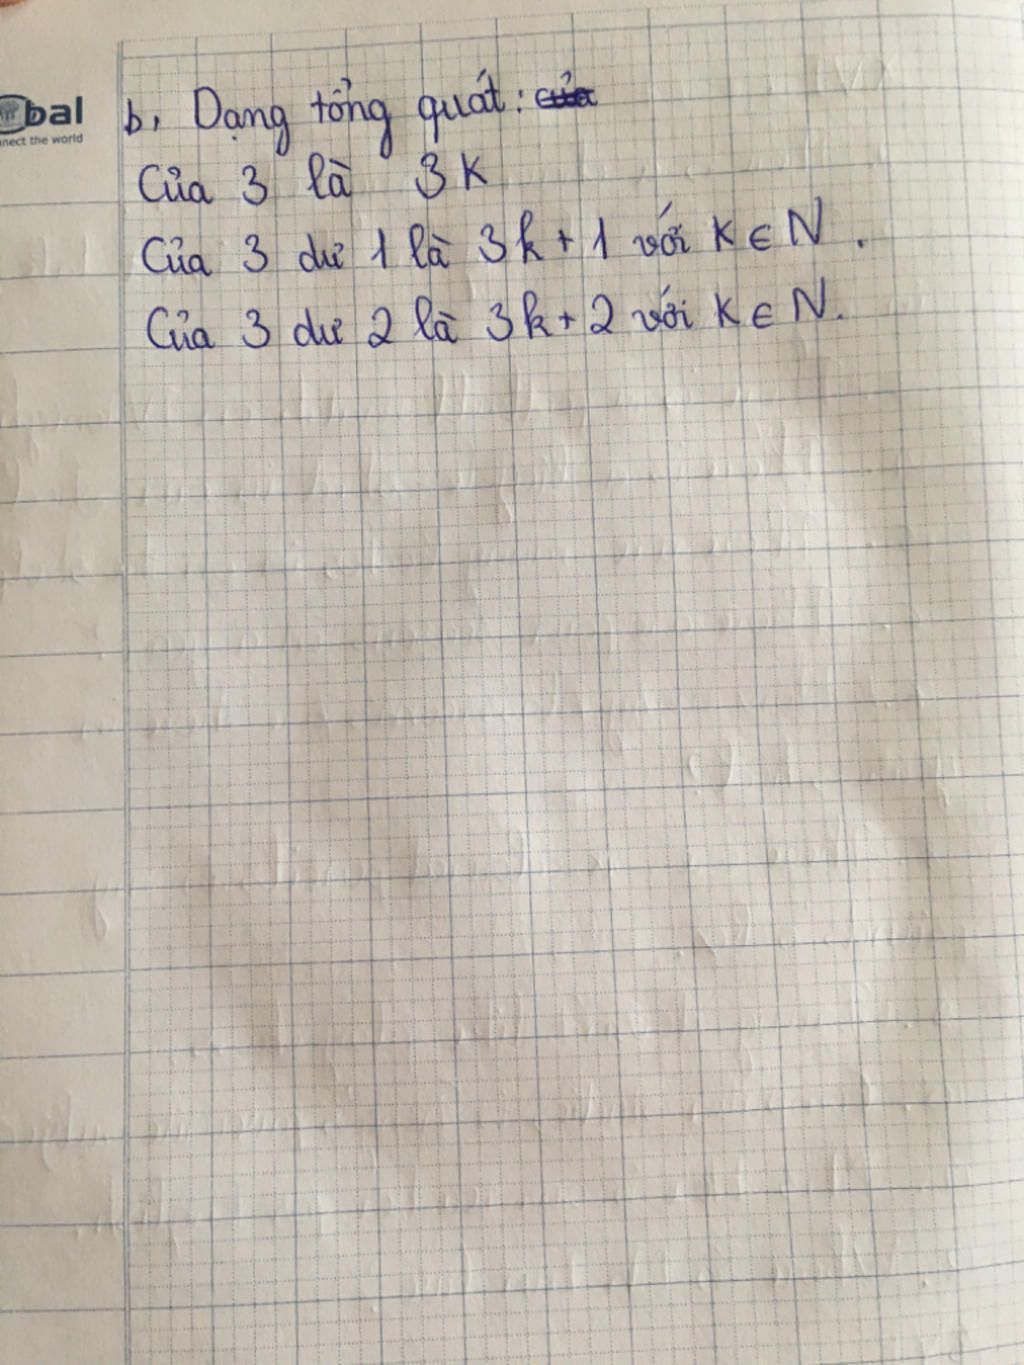 bal
nect the world
b, Dạng tổng quát: của
Của 3 là 3K
Của 3 dư 1 là 3k + 1 với K ∈ N.
Của 3 dư 2 là 3k + 2 với K ∈ N.